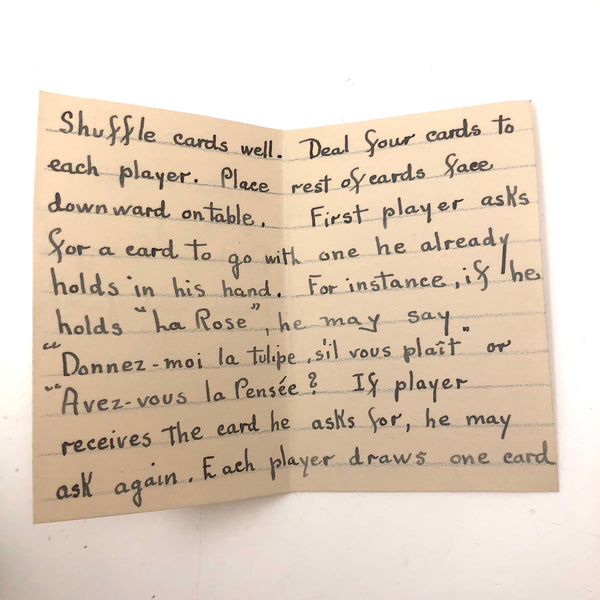 Shuffle cards well. Deal four cards to
each player. Place rest of cards face
downward on table. First player asks
for a card to go with one he already
holds in his hand. For instance, if he
holds "La Rose", he may say
"Donnez-moi la tulipe, s'il vous plaît" or
"Avez-vous la Pensée? If player
receives the card he asks for, he may
ask again. Each player draws one card